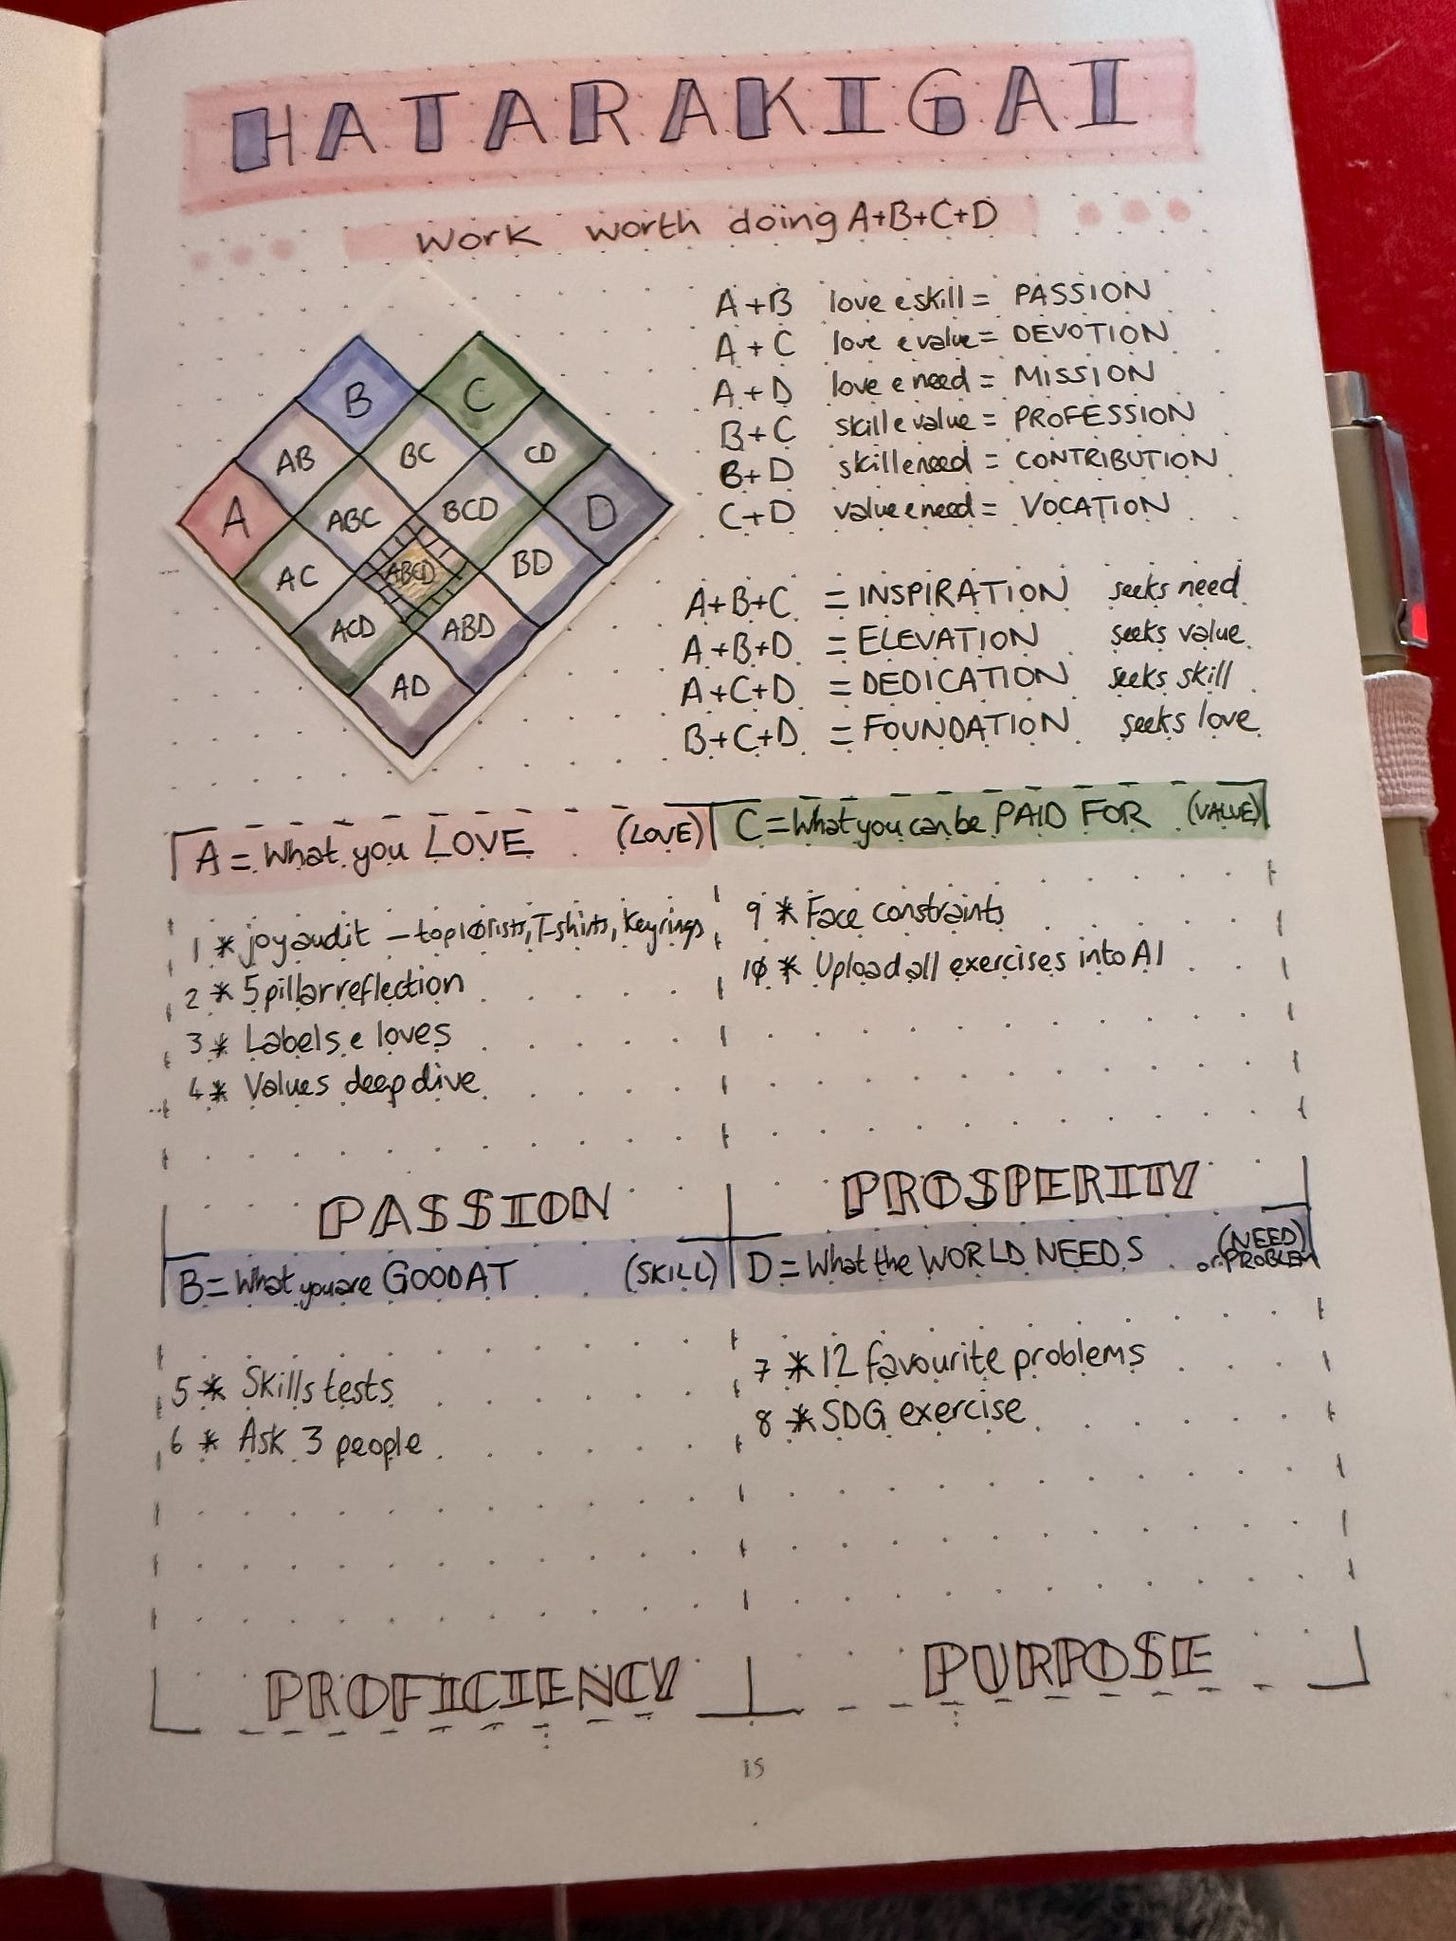 HATARAKIGAI
Work worth doing A+B+C+D
A+B love e skill = PASSION
A+C love e value = DEVOTION
A+D love e need = MISSION
B+C skill e value = PROFESSION
B+D skill e need = CONTRIBUTION
C+D value e need = VOCATION
B C
AB BC CD
A ABC BCD D
AC ABCD BD
ACD ABD
AD
A+B+C = INSPIRATION seeks need
A+B+D = ELEVATION seeks value
A+C+D = DEDICATION seeks skill
B+C+D = FOUNDATION seeks love
A = What you LOVE (LOVE)
1 * joy audit – top 10 lists, T-shirts, Keyrings
2 * 5 pillar reflection
3 * Labels e loves
4 * Values deep dive
PASSION
C = What you can be PAID FOR (VALUE)
9 * Face constraints
10 * Upload all exercises into AI
PROSPERITY
B = What you are GOOD AT (SKILL)
5 * Skills tests
6 * Ask 3 people
PROFICIENCY
D = What the WORLD NEEDS (NEED)
or PROBLEM
7 * 12 favourite problems
8 * SDG exercise
PURPOSE
15